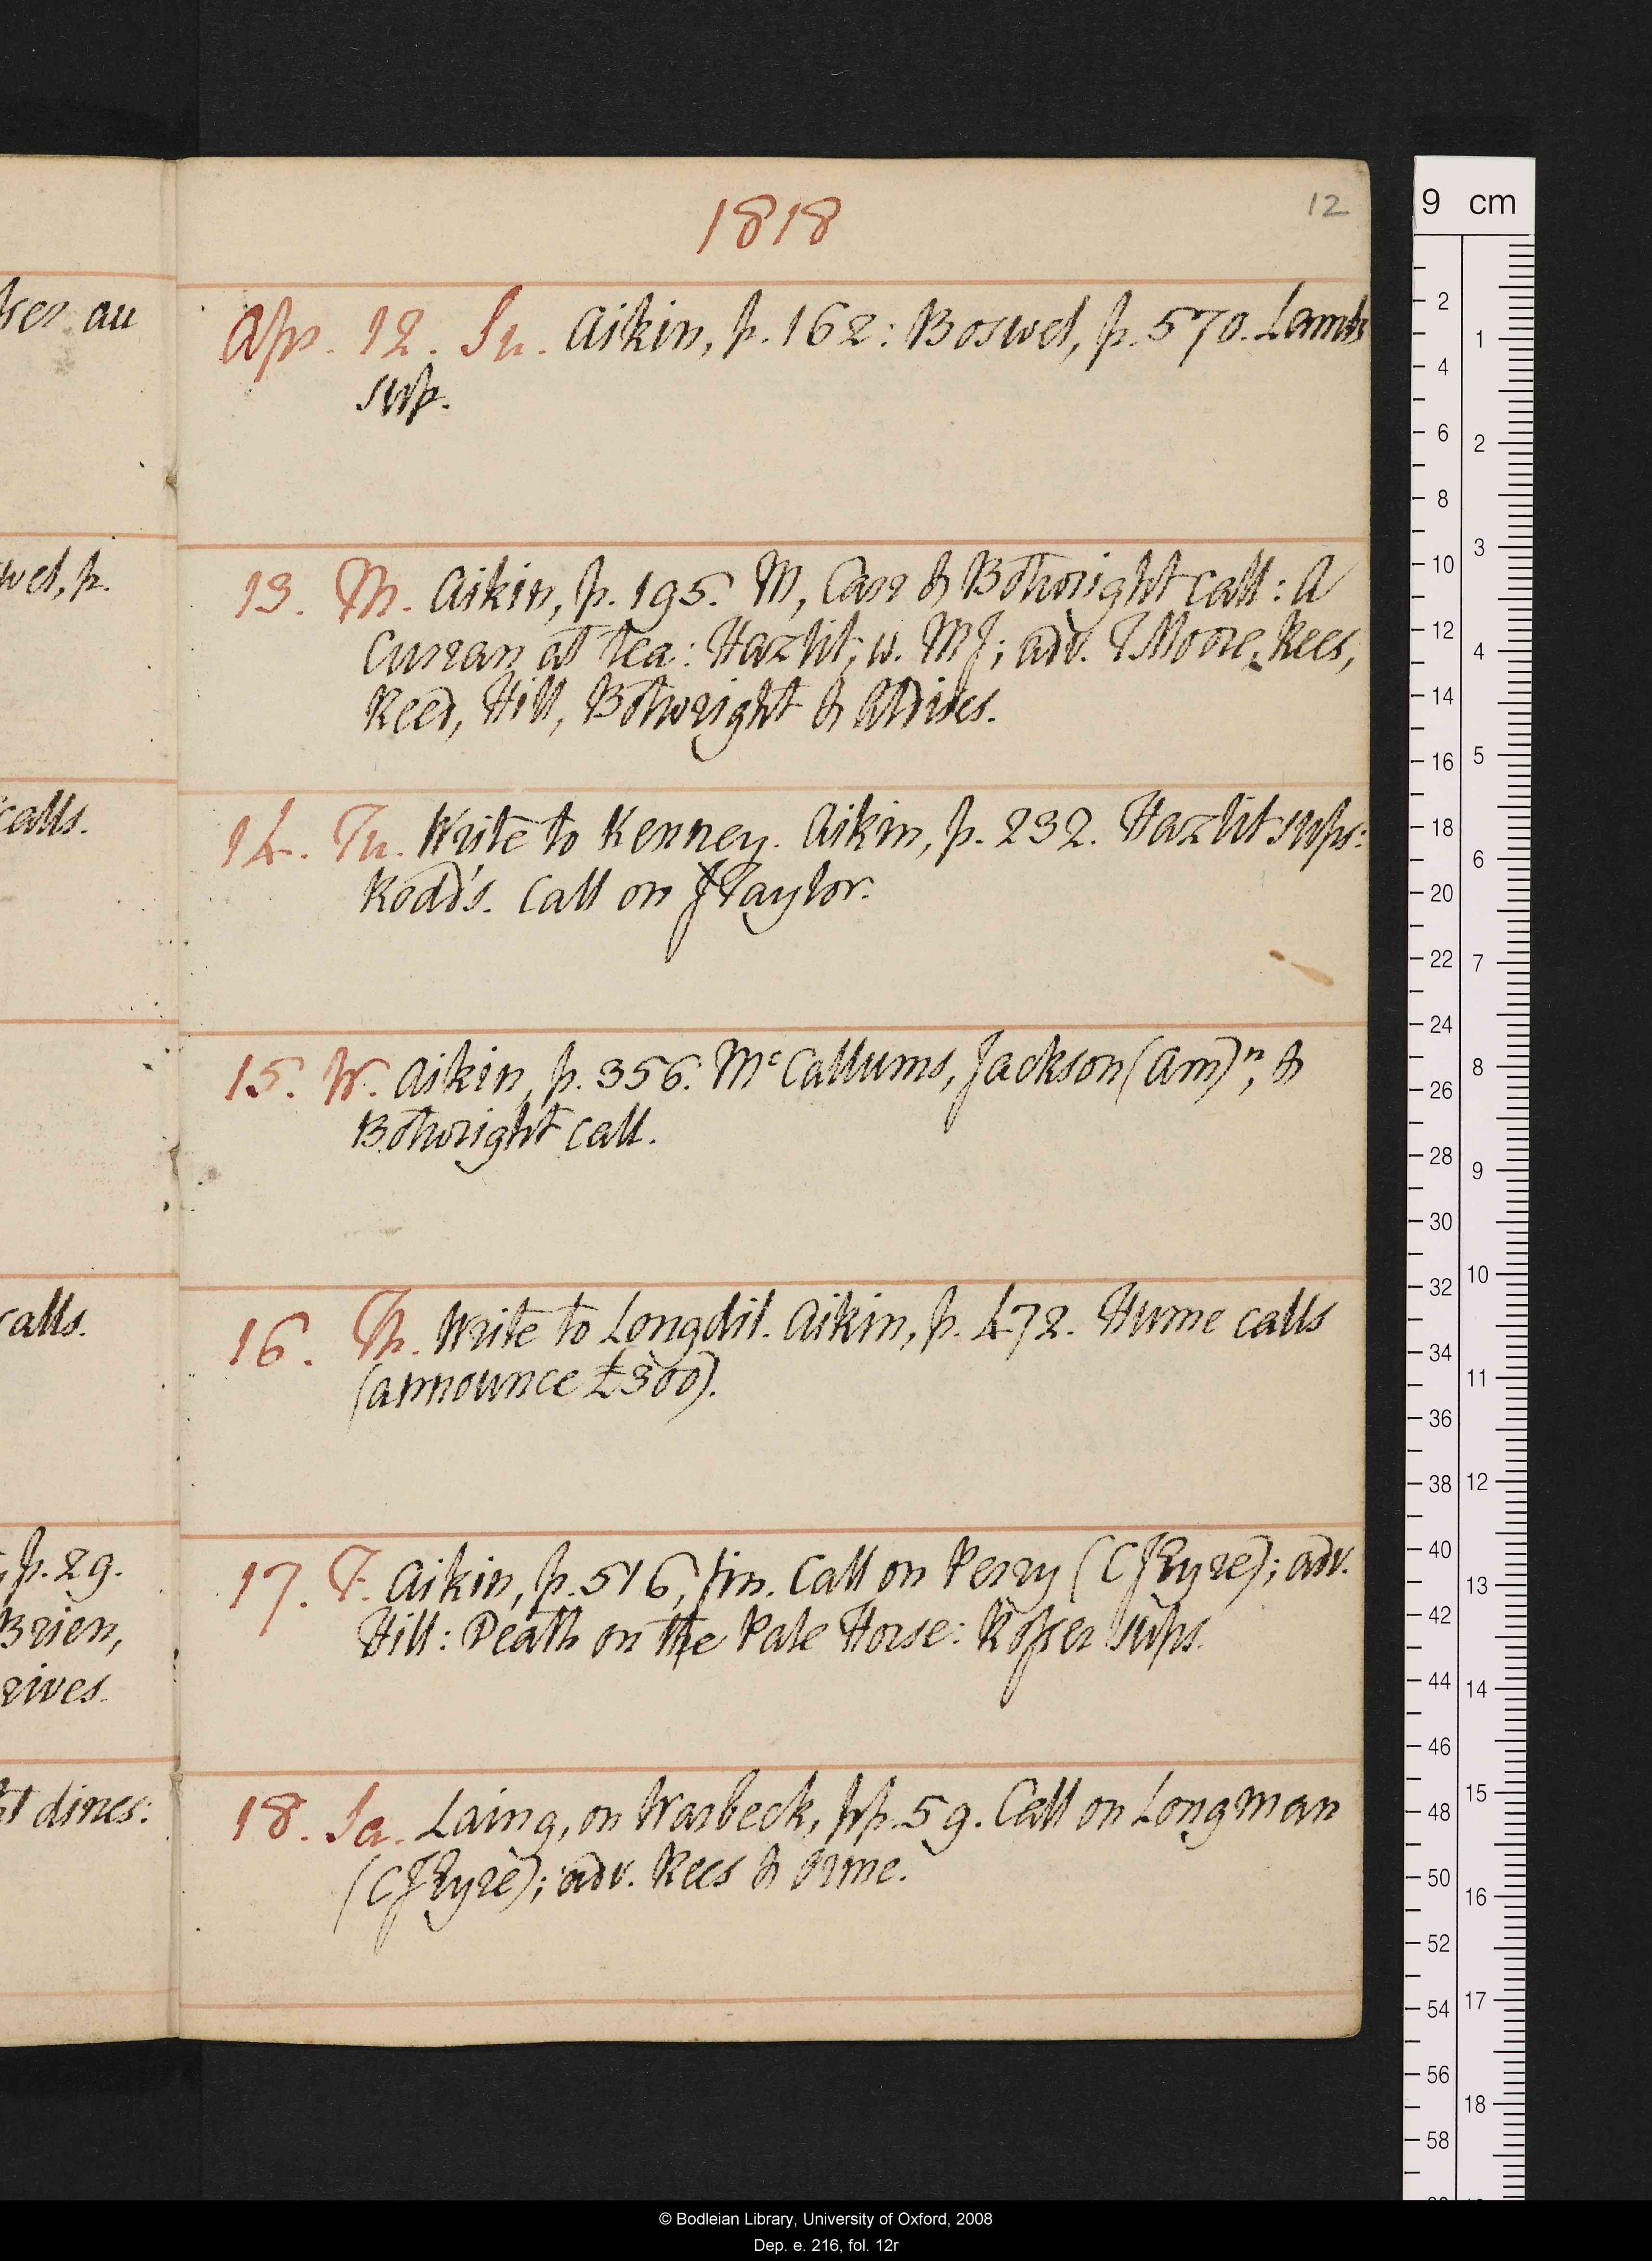 1818
12
ker au
Apr. 12. Su. Aikin, p. 162: Boswel, p. 570. Lambs
sup.
wel, p.
13. M. Aikin, p. 195. M, Carr & Bothwright call: A
Curran at tea: Hazlit, w. MJ; adv. TMoore, Rees,
Reed, Hill, Bothwright & Aldises.
calls.
14. Tu. Write to Kenney. Aikin, p. 232. Hazlit sups:
Rodd's. Call on JTaylor.
15. W. Aikin, p. 356. McCallums, Jackson (Am)n, &
Bothwright call.
calls.
16. Th. Write to Longdil. Aikin, p. 472. Hume calls
(announce £300).
p. 29.
Brien,
rives.
17. F. Aikin, p. 516, fin. Call on Perry (CJEyre); adv.
Hill: Death on the Pale Horse: Rosser sups.
t dines:
18. Sa. Laing, on Warbeck, pp. 59. Call on Longman
(CJEyre); adv. Rees & Orme.
9 cm
2
4
6
8
10
12
14
16
18
20
22
24
26
28
30
32
34
36
38
40
42
44
46
48
50
52
54
56
58
1
2
3
4
5
6
7
8
9
10
11
12
13
14
15
16
17
18
© Bodleian Library, University of Oxford, 2008
Dep. e. 216, fol. 12r